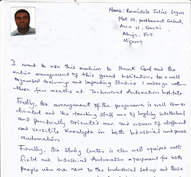 Name: Ramidele Julius Segun
Plot 52, parliament Ground,
Area 11, Garki
Abuja, FCT
Nigeria
I want to use this medium to thank God and the
entire management of this grand institution, for a well
organized training and impending studies I undergo within
three four months at Technocrat Automation Institute
Firstly, the arrangement of the programme is well
and the teaching staff are of highly intellectual
and practically oriented men and women of different
and versatile knowledge in both industrial and process
automation.
Finally, the study center is also well equiped with
field and industrial Automation equipment for both
people who are new to the industrial setup and those